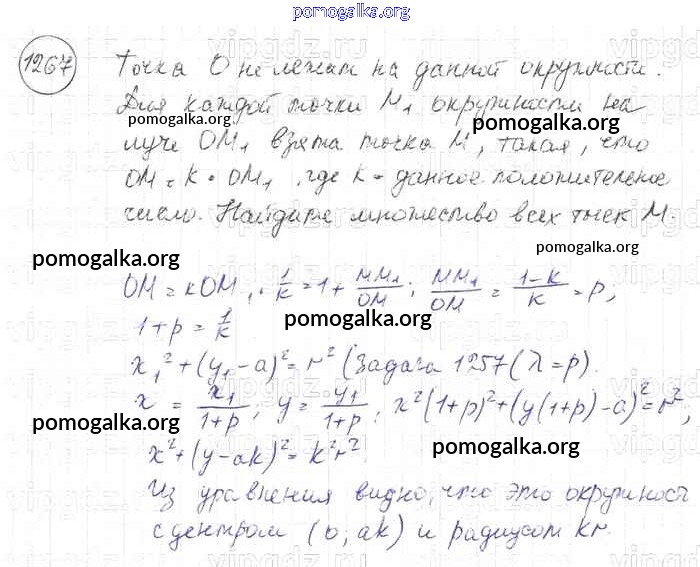 pomogalka.org
1267 Точка О не лежит на данной окружности.
Для каждой точки M₁ окружности на
pomogalka.org
луче OM₁ взята точка M, такая, что
OM = k · OM₁, где k - данное положительное
число. Найдите множество всех точек M.
pomogalka.org
pomogalka.org
OM = kOM₁, 1/k = 1 + MM₁/OM; MM₁/OM = (1-k)/k = p,
pomogalka.org
1 + p = 1/k.
x₁² + (y₁ - a)² = r² (Задача 1257 (λ = p).
x = x₁/(1+p), y = y₁/(1+p); x²(1+p)² + (y(1+p) - a)² = r²,
pomogalka.org
pomogalka.org
x² + (y - ak)² = k²r².
Из уравнения видно, что это окружность
с центром (0, ak) и радиусом kr.